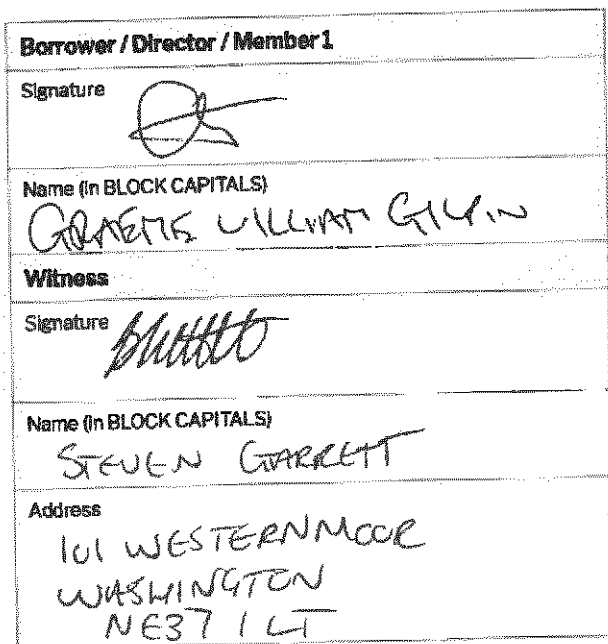 Borrower / Director / Member 1
Signature
Name (in BLOCK CAPITALS)
GRAEME WILLIAM GILPIN
Witness
Signature
Name (in BLOCK CAPITALS)
STEVEN GARRETT
Address
101 WESTERNMOOR
WASHINGTON
NE37 1LT